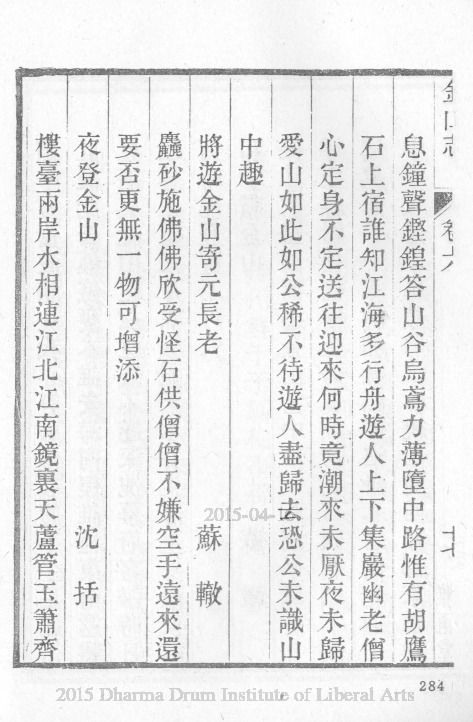 金山志 卷六 十七
息鐘聲鏗鍠答山谷烏鳶力薄墮中路惟有胡鷹
石上宿誰知江海多行舟遊人上下集巖幽老僧
心定身不定送往迎來何時竟潮來未厭夜未歸
愛山如此如公稀不待遊人盡歸去恐公未識山
中趣
將遊金山寄元長老 蘇轍
麤砂施佛佛欣受怪石供僧僧不嫌空手遠來還
要否更無一物可增添
夜登金山 沈括
樓臺兩岸水相連江北江南鏡裏天蘆管玉簫齊
284
2015-04-
2015 Dharma Drum Institute of Liberal Arts